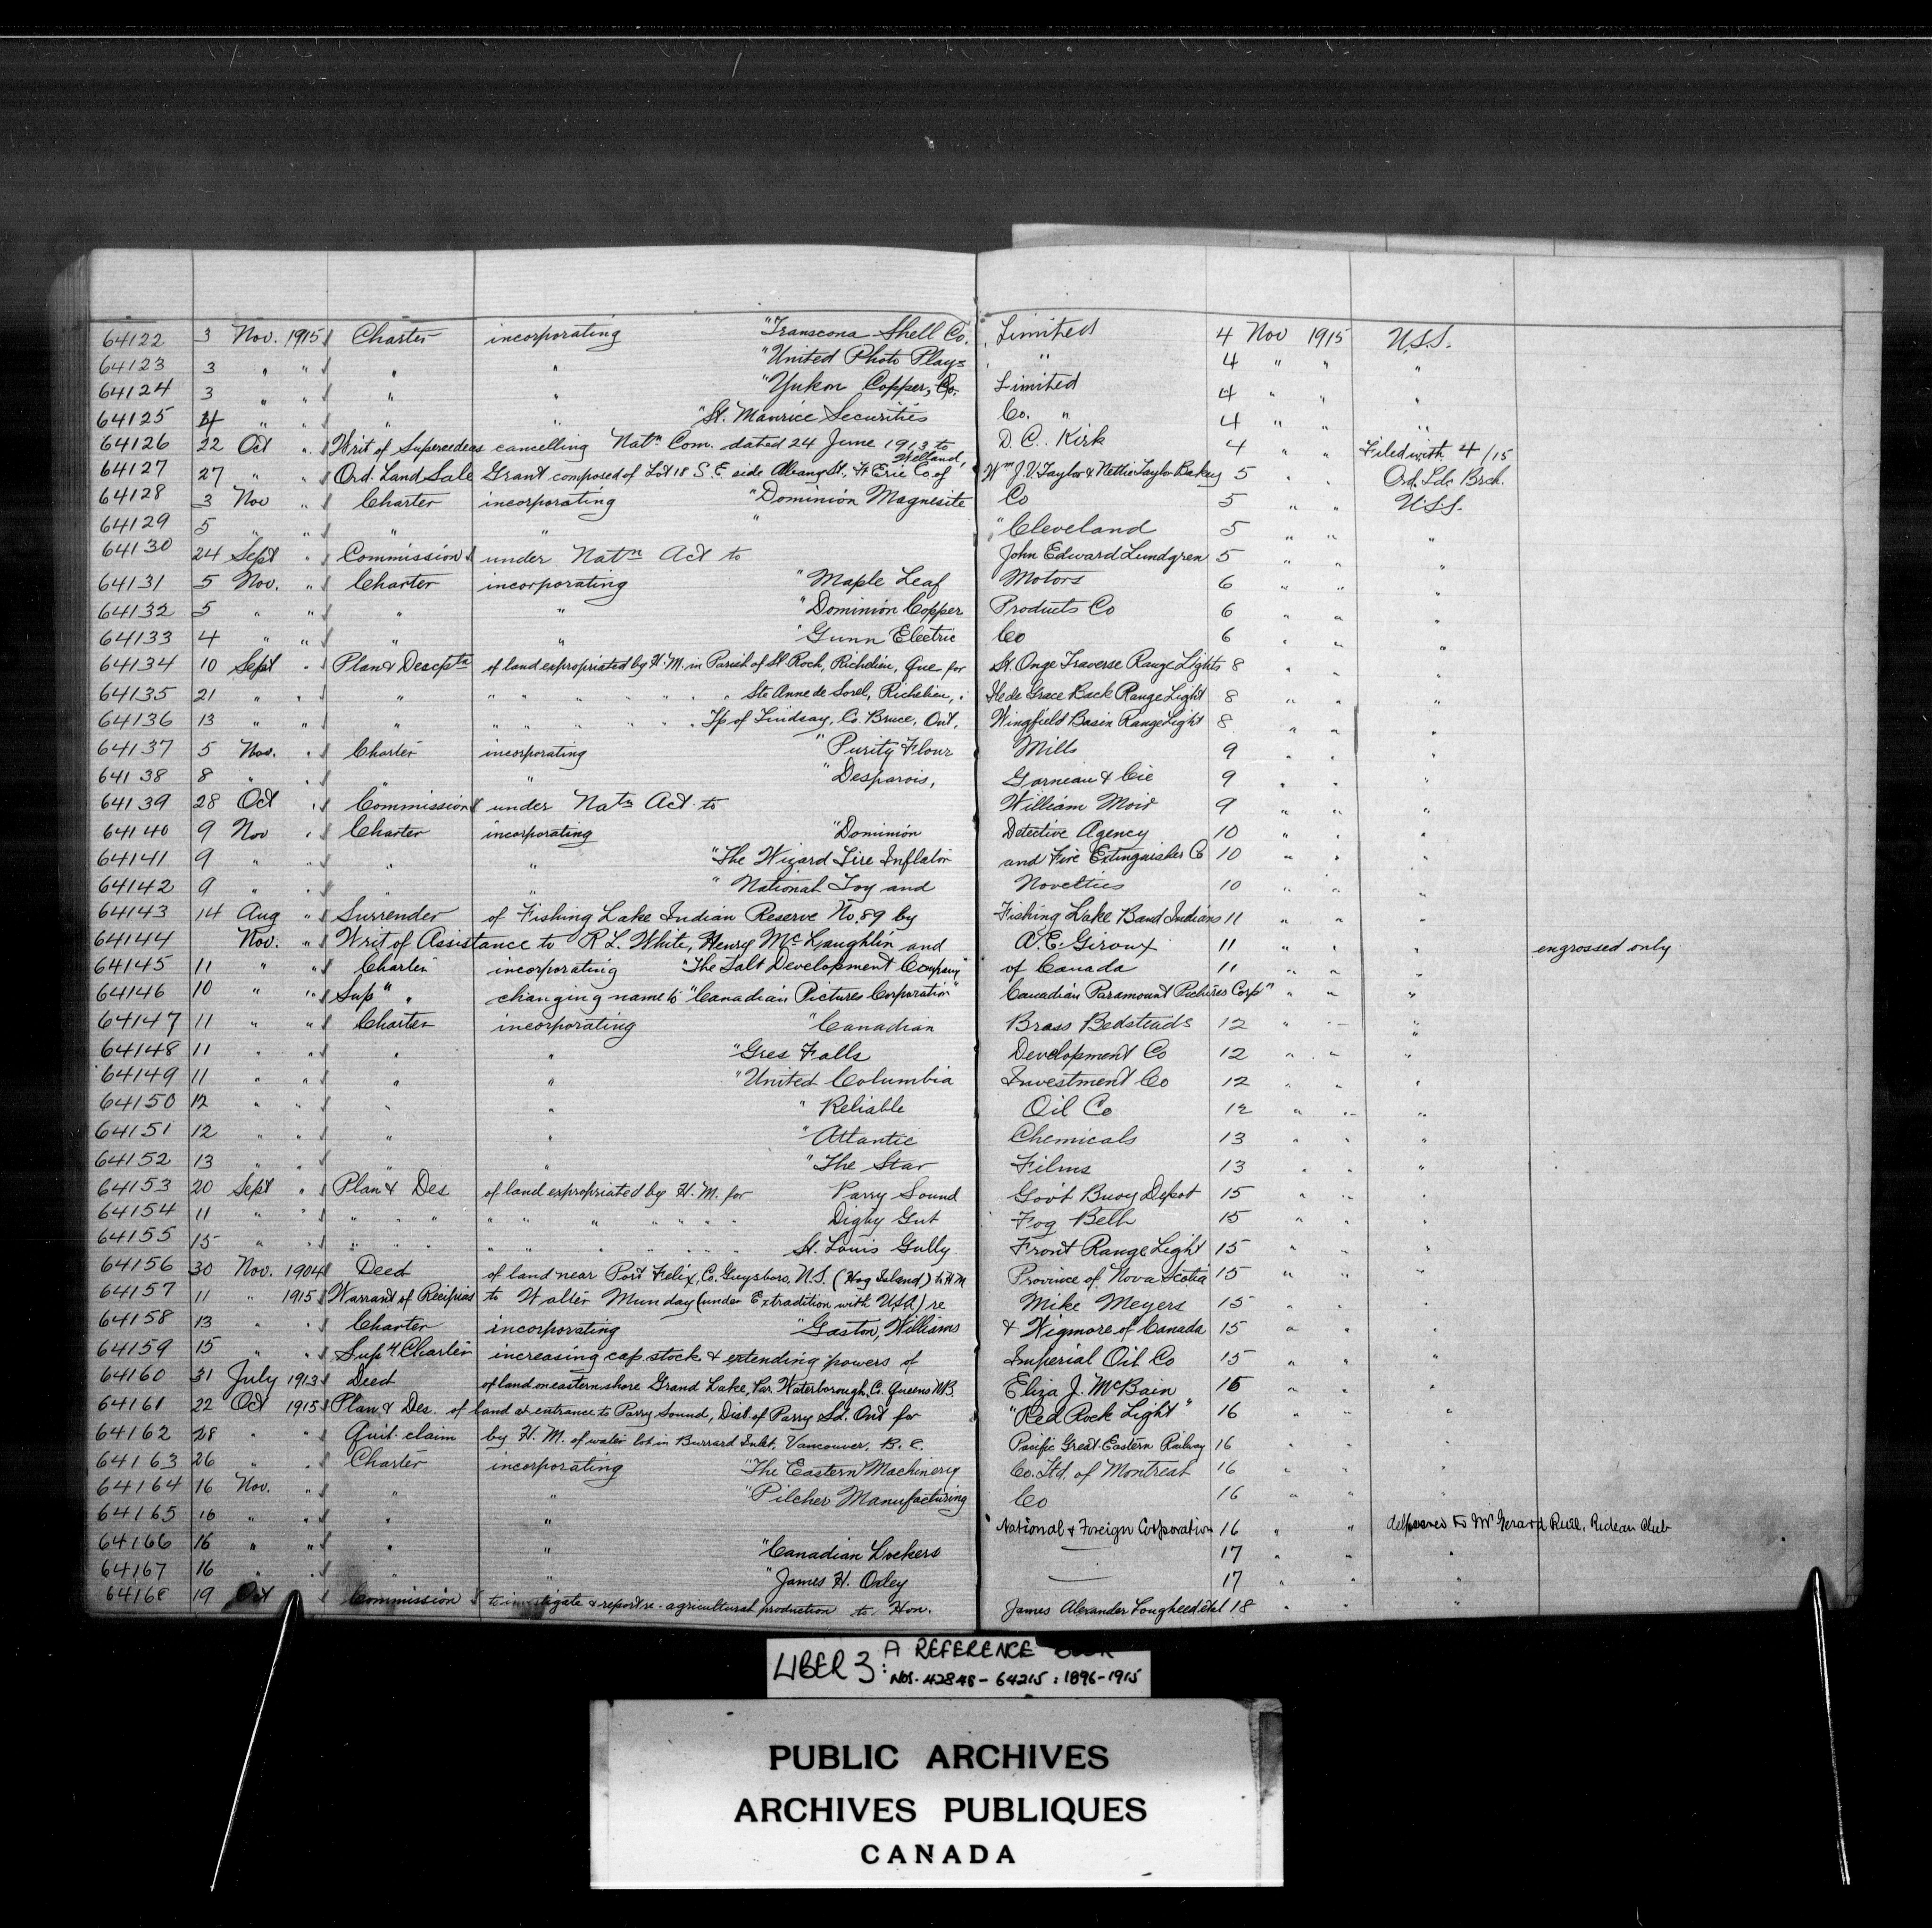 64122 3 Nov. 1915 Charter incorporating "Transcona Shell Co. Limited 4 Nov 1915 U.S.S.
64123 3 " " " " "United Photo Plays " 4 " " "
64124 3 " " " " "Yukon Copper, Co. Limited 4 " " "
64125 4 " " " " "St. Maurice Securities Co. " 4 " " "
64126 22 Oct " Writ of Supersedeas cancelling Natn Com. dated 24 June 1913 to D. C. Kirk 4 " " Filed with 4/15
Welland,
64127 27 " " Ord. Land Sale Grant composed of Lot 18 S. E. side Albany St. Ft Erie Co. of Wm J. V. Taylor & Nettie Taylor Bakey 5 " " Ord. Lds Brch.
64128 3 Nov " Charter incorporating "Dominion Magnesite Co 5 " " U.S.S.
64129 5 " " " " " "Cleveland 5 " " "
64130 24 Sept " Commission under Natn Act to John Edward Lundgren 5 " " "
64131 5 Nov. " Charter incorporating "Maple Leaf Motors 6 " " "
64132 5 " " " " "Dominion Copper Products Co 6 " " "
64133 4 " " " " "Gunn Electric Co 6 " " "
64134 10 Sept " Plan & Descptn of land expropriated by H. M. in Parish of St. Roch, Richelieu, Que for St. Onge Traverse Range Lights 8 " " "
64135 21 " " " " " " " " " Ste Anne de Sorel, Richelieu, " Ile de Grace Back Range Light 8 " " "
64136 13 " " " " " " " " " Tp of Lindsay, Co. Bruce, Ont. Wingfield Basin Range Light 8 " " "
64137 5 Nov. " Charter incorporating "Purity Flour Mills 9 " " "
64138 8 " " " " "Desparois, Garneau & Cie 9 " " "
64139 28 Oct " Commission under Natn Act to William Moir 9 " " "
64140 9 Nov " Charter incorporating "Dominion Detective Agency 10 " " "
64141 9 " " " " "The Wizard Tire Inflator and Fire Extinguisher Co 10 " " "
64142 9 " " " " "National Toy and Novelties 10 " " "
64143 14 Aug " Surrender of Fishing Lake Indian Reserve No. 89 by Fishing Lake Band Indians 11 " " "
64144 Nov. " Writ of Assistance to R L. White, Henry McLaughlin and A. E. Giroux 11 " " " engrossed only
64145 11 " " Charter incorporating "The Salt Development Company of Canada 11 " " "
64146 10 " " Sup " " changing name to "Canadian Pictures Corporation" Canadian Paramount Pictures Corp" " " "
64147 11 " " Charter incorporating "Canadian Brass Bedsteads 12 " " "
64148 11 " " " " "Gres Falls Development Co 12 " " "
64149 11 " " " " "United Columbia Investment Co 12 " " "
64150 12 " " " " "Reliable Oil Co 12 " " "
64151 12 " " " " "Atlantic Chemicals 13 " " "
64152 13 " " " " "The Star Films 13 " " "
64153 20 Sept " Plan & Des of land expropriated by H. M. for Parry Sound Gov't Buoy Depot 15 " " "
64154 11 " " " " " " " " " " " " Digby Gut Fog Bell 15 " " "
64155 15 " " " " " " " " " " " " St. Louis Gully Front Range Light 15 " " "
64156 30 Nov. 1904 Deed of land near Port Felix, Co. Guysboro, N.S. (Hog Island) to H M Province of Nova Scotia 15 " " "
64157 11 " 1915 Warrant of Recipias to Walter Munday (under Extradition with USA) re Mike Meyers 15 " " "
64158 13 " " Charter incorporating "Gaston, Williams & Wigmore of Canada 15 " " "
64159 15 " " Supy. Charter increasing cap. stock & extending powers of Imperial Oil Co 15 " " "
64160 31 July 1913 Deed of land on eastern shore Grand Lake, Par. Waterborough, Co. Queens N.B. Eliza J. McBain 16 " " "
64161 22 Oct 1915 Plan & Des. of land at entrance to Parry Sound, Dist. of Parry Sd. Ont for "Red Rock Light" 16 " " "
64162 28 " " Quit claim by H. M. of water lot in Burrard Inlet, Vancouver, B. C. Pacific Great Eastern Railway 16 " " "
64163 26 " " Charter incorporating "The Eastern Machinery Co. Ltd. of Montreal 16 " " "
64164 16 Nov. " " " "Pilcher Manufacturing Co 16 " " "
64165 16 " " " " "National & Foreign Corporation 16 " " delivered to Mr Gerard Ruel, Rideau Club
64166 16 " " " " "Canadian Lockers — 17 " " "
64167 16 " " " " "James H. Oxley — 17 " " "
64168 19 Oct " Commission to investigate & report re. agricultural production to Hon. James Alexander Lougheed et al 18 " " "
LIBER 3: A REFERENCE BOOK
NOS. 42848 - 64215 : 1896-1915
PUBLIC ARCHIVES
ARCHIVES PUBLIQUES
CANADA